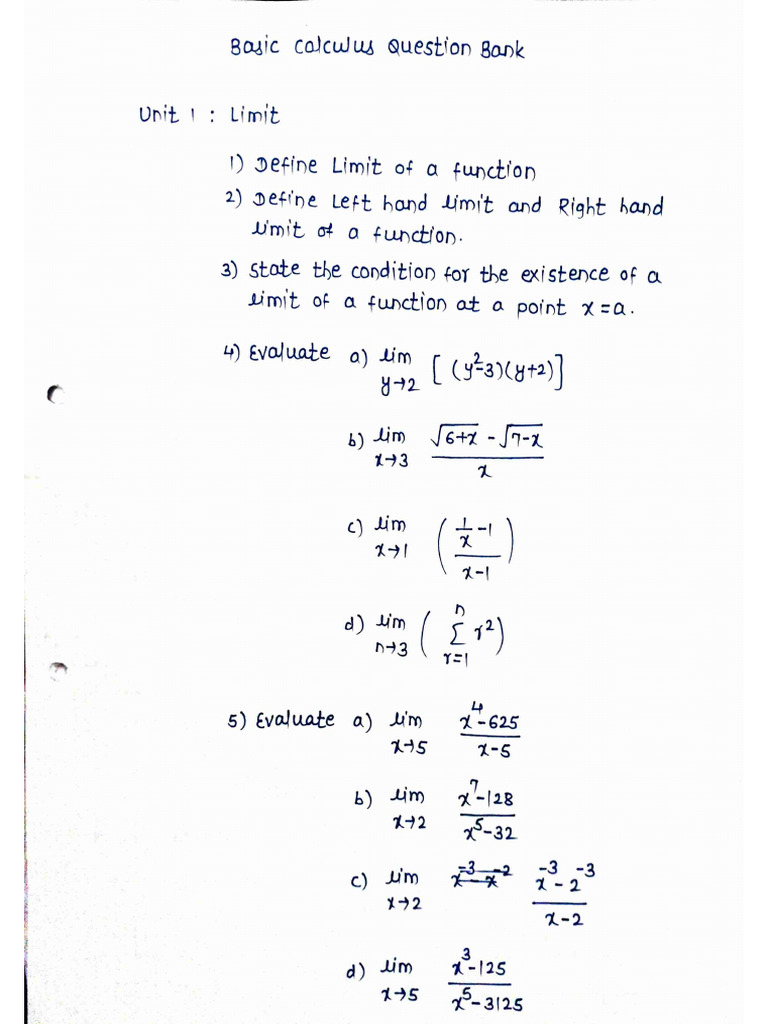 Basic Calculus Question Bank
Unit 1 : Limit
1) Define Limit of a function
2) Define Left hand limit and Right hand
limit of a function.
3) State the condition for the existence of a
limit of a function at a point x = a.
4) Evaluate a) lim y→2 [(y²-3)(y+2)]
b) lim x→3 (√6+x - √7-x)/x
c) lim x→1 ((1/x - 1)/(x-1))
d) lim n→3 (Σ r=1 n r²)
5) Evaluate a) lim x→5 (x⁴-625)/(x-5)
b) lim x→2 (x⁷-128)/(x⁵-32)
c) lim x→2 (x⁻³ - 2⁻³)/(x-2)
d) lim x→5 (x³-125)/(x⁵-3125)